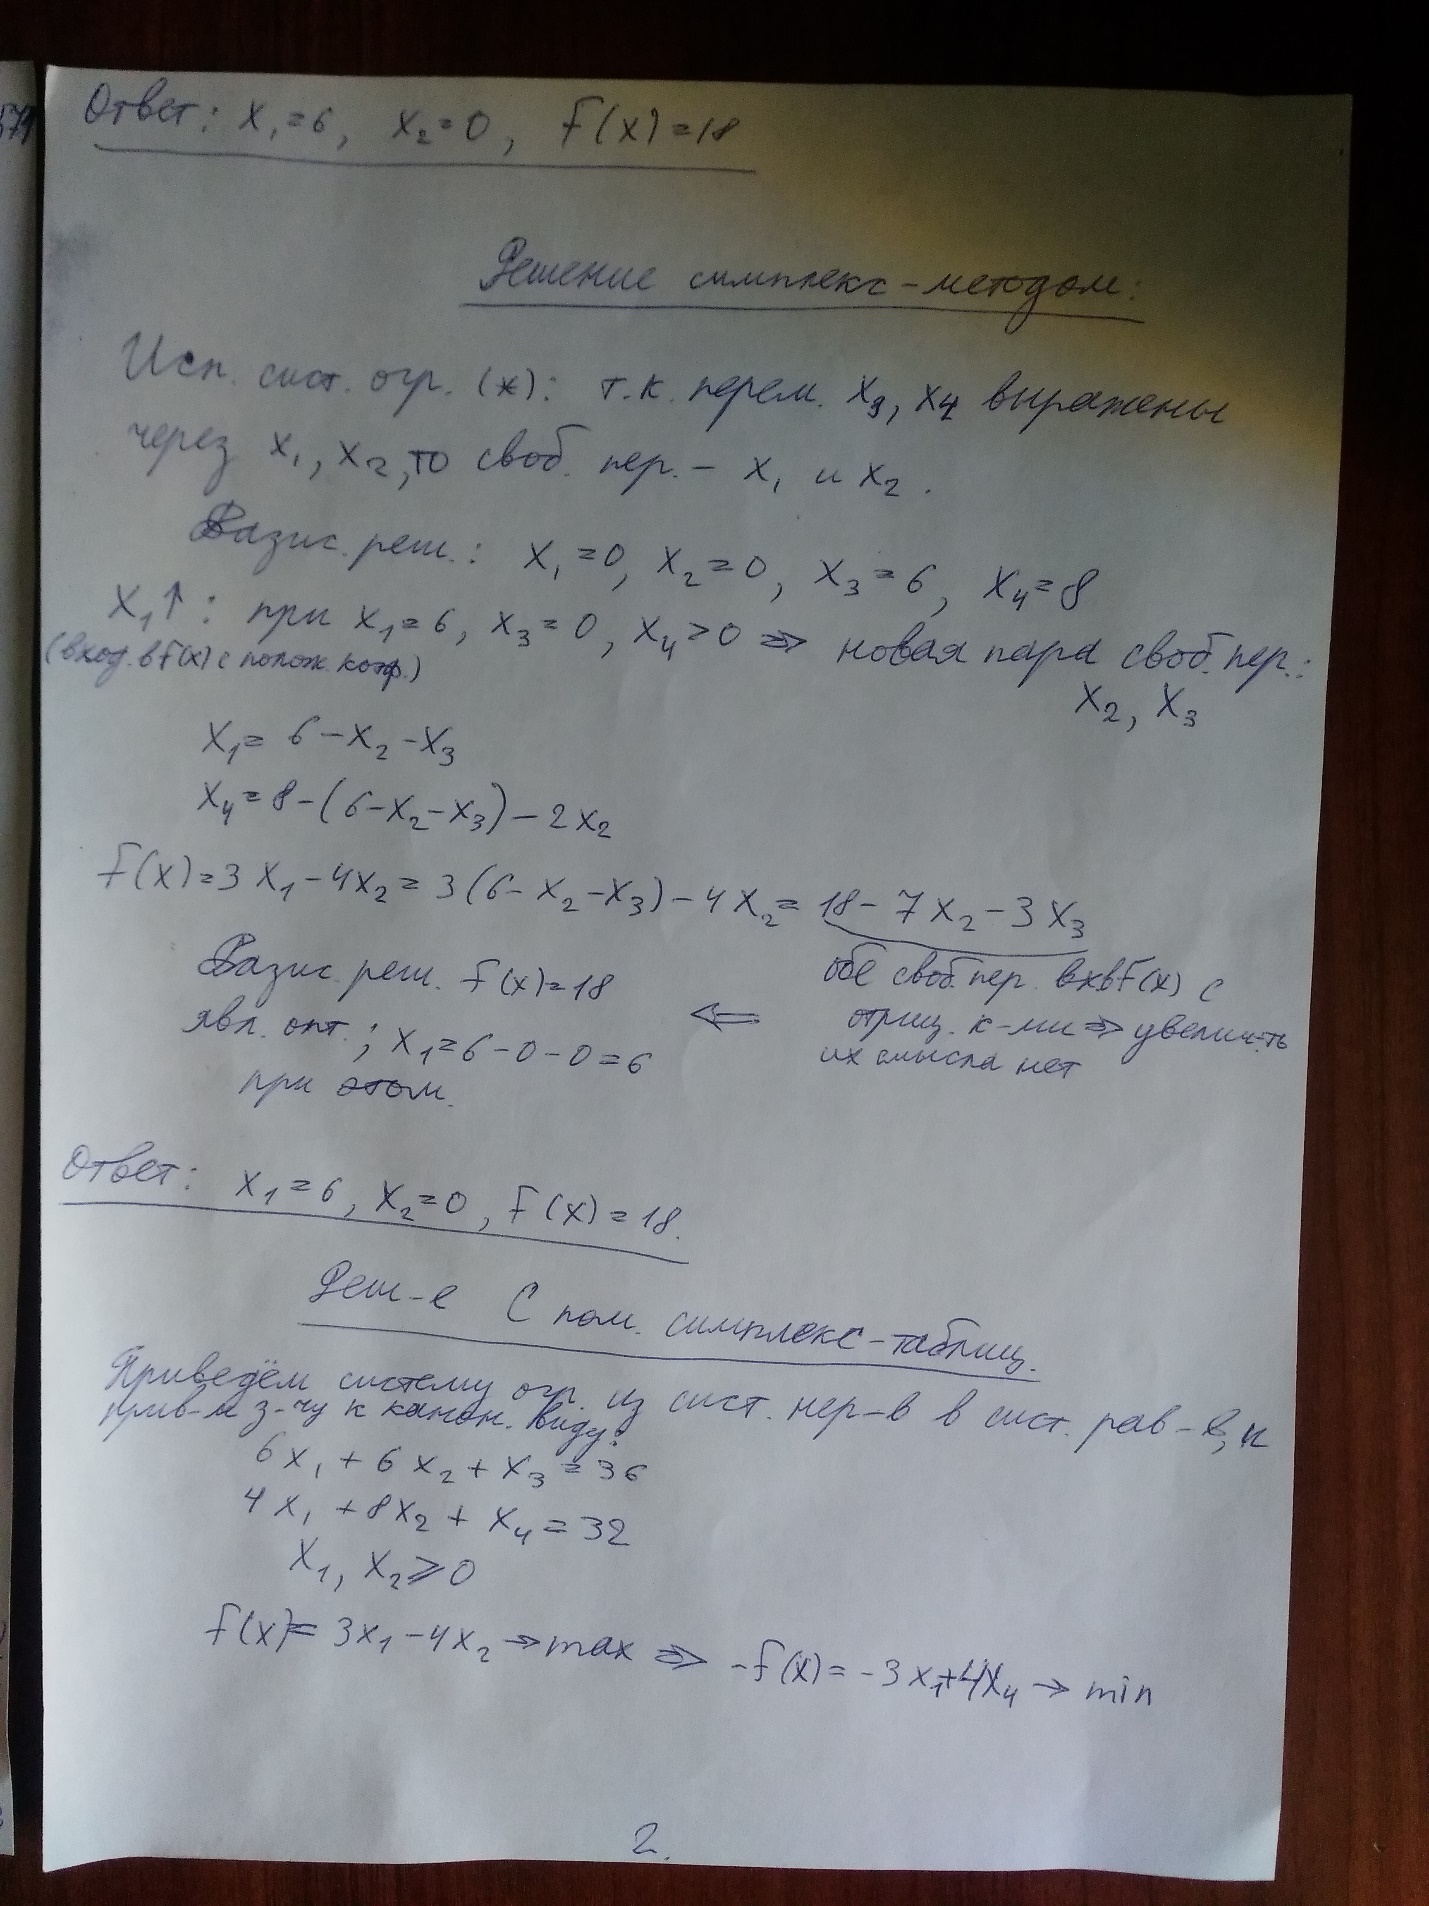 Ответ: x₁=6, x₂=0, F(x)=18
Решение симплекс-методом:
Исп. сист. огр. (*): т.к. перем. x₃, x₄ выражены
через x₁, x₂, то своб. пер. – x₁ и x₂.
Базис. реш.: x₁=0, x₂=0, x₃=6, x₄=8
x₁↑: при x₁=6, x₃=0, x₄>0 => новая пара своб. пер.:
(вход. в F(x) с полож. коэф.)
x₂, x₃
x₁= 6-x₂-x₃
x₄=8-(6-x₂-x₃)-2x₂
F(x)=3x₁-4x₂=3(6-x₂-x₃)-4x₂=18-7x₂-3x₃
Базис. реш. F(x)=18
явл. опт.; x₁=6-0-0=6
при этом.
<=
обе своб. пер. вх в F(x) с
отриц. к-ми => увелич-ть
их смысла нет
Ответ: x₁=6, x₂=0, F(x)=18.
Реш-е с пом. симплекс-таблиц.
Приведём систему огр. из сист. нер-в в сист. рав-в, и
прив-м з-чу к канон. виду:
6x₁+6x₂+x₃=36
4x₁+8x₂+x₄=32
x₁, x₂⩾0
F(x)= 3x₁-4x₂→max => -F(x)=-3x₁+4x₄→min
2.